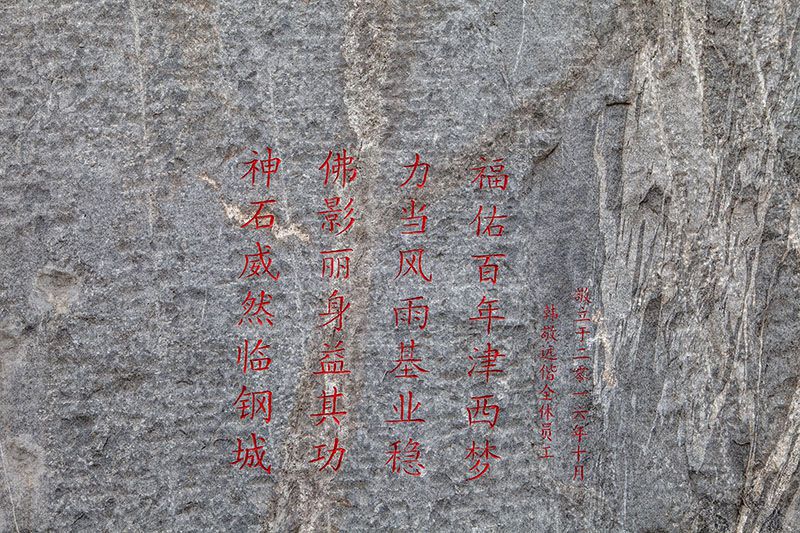 神石威然临钢城
佛影丽身益其功
力当风雨基业稳
福佑百年津西梦
韩敬远偕全体员工
敬立于二零一六年十月